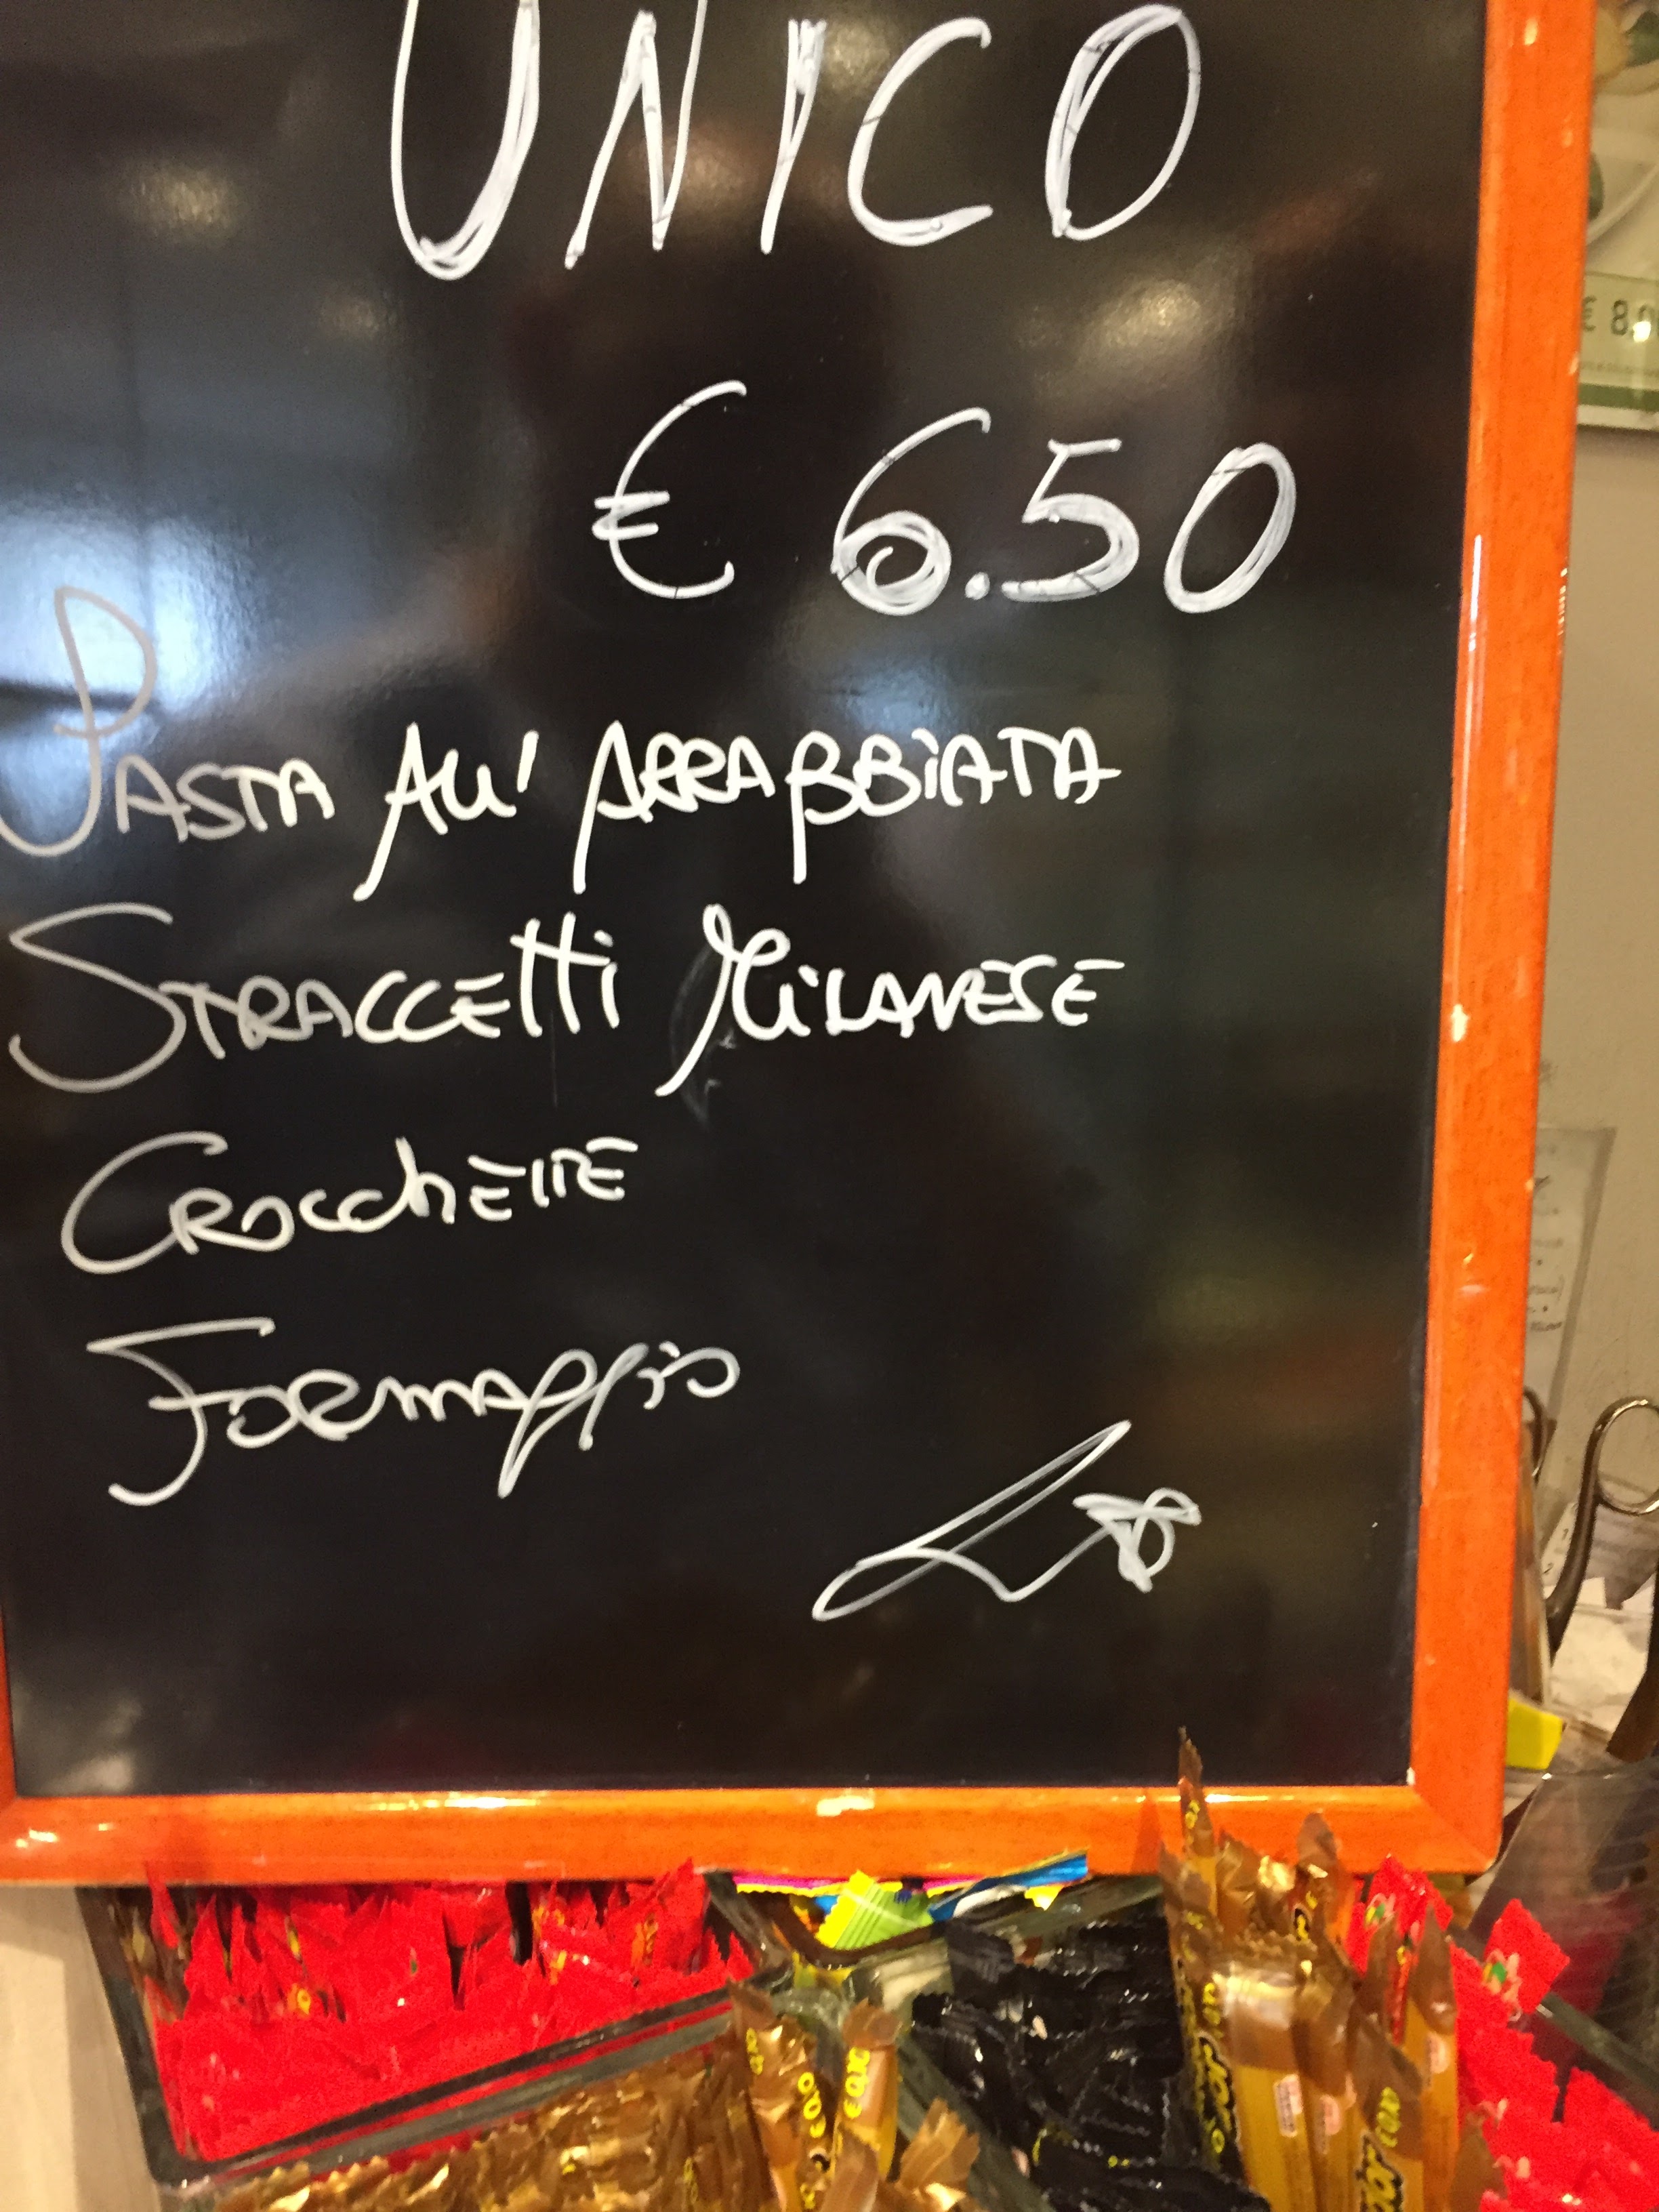 UNICO
€ 6.50
PASTA All' ARRABBIATA
STRACCETTI MILANESE
CROCCHETTE
FORMAGGIO
€ 8.